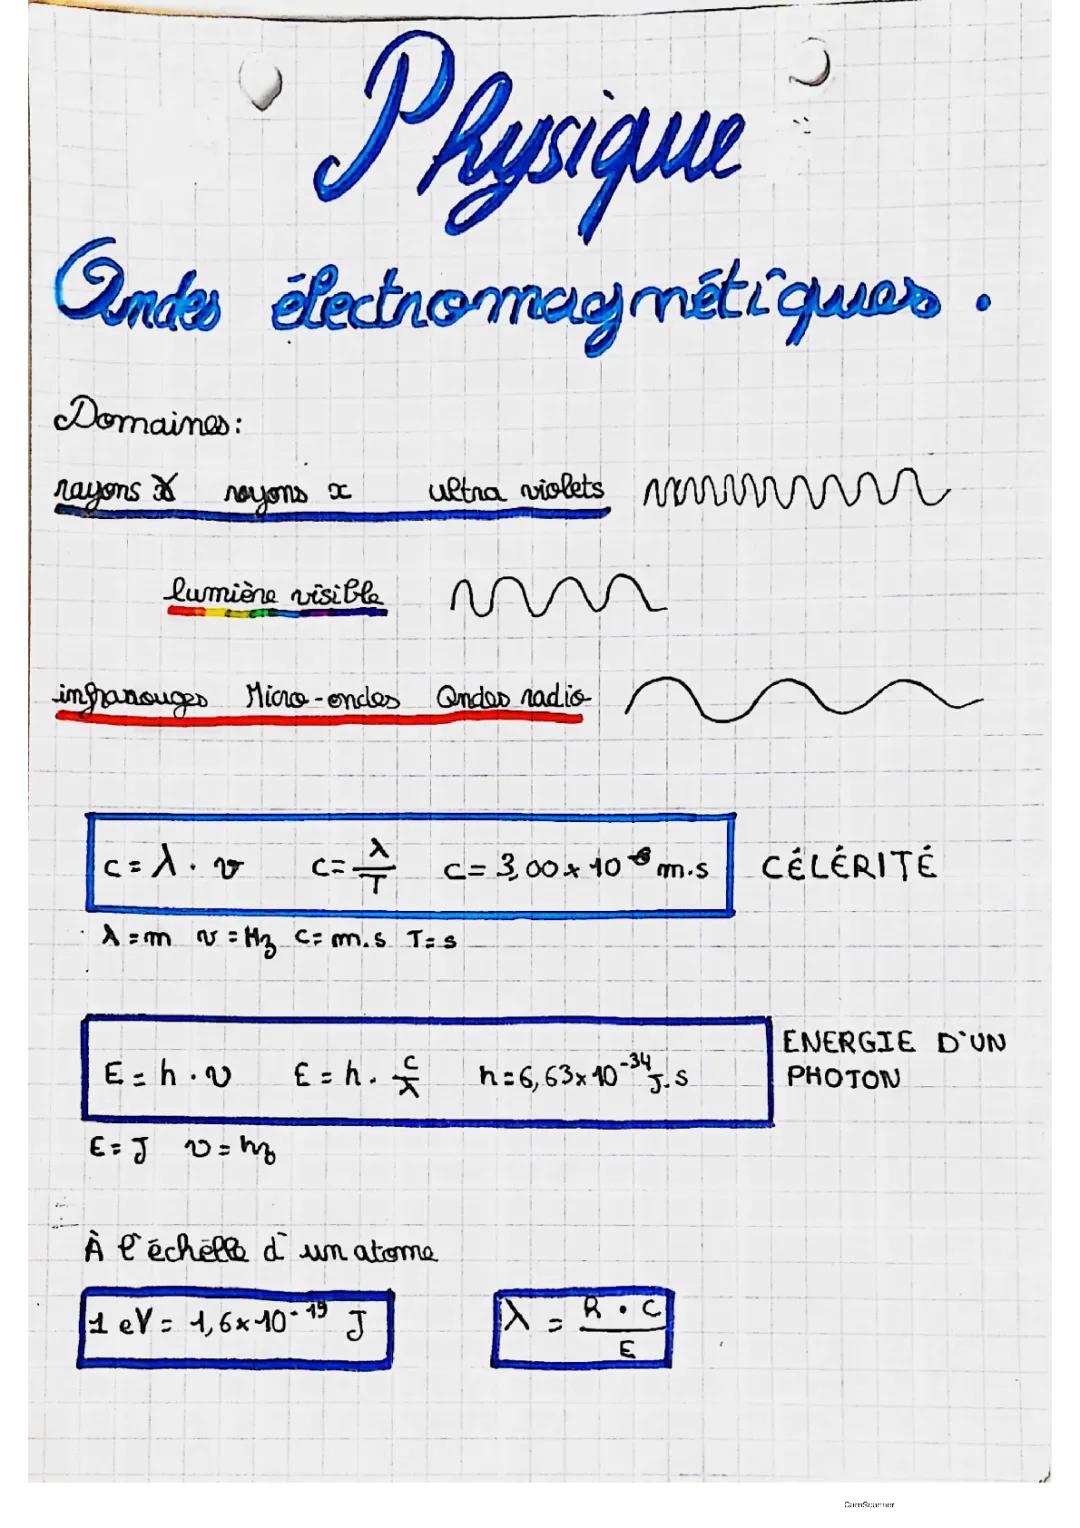 Physique
Ondes électromagnétiques.
Domaines:
rayons γ rayons x ultra violets
lumière visible
infrarouges Micro-ondes Ondes radio
c = λ . ν c = λ/T c = 3,00 x 10⁻⁸ m.s CÉLÉRITÉ
λ = m ν = Hz c = m.s T = s
E = h . ν E = h . c/λ h = 6,63 x 10⁻³⁴ J.s ENERGIE D'UN
PHOTON
E = J ν = hz
À l'échelle d'un atome
1 eV = 1,6 x 10⁻¹⁹ J λ = h . c / E
CamScanner